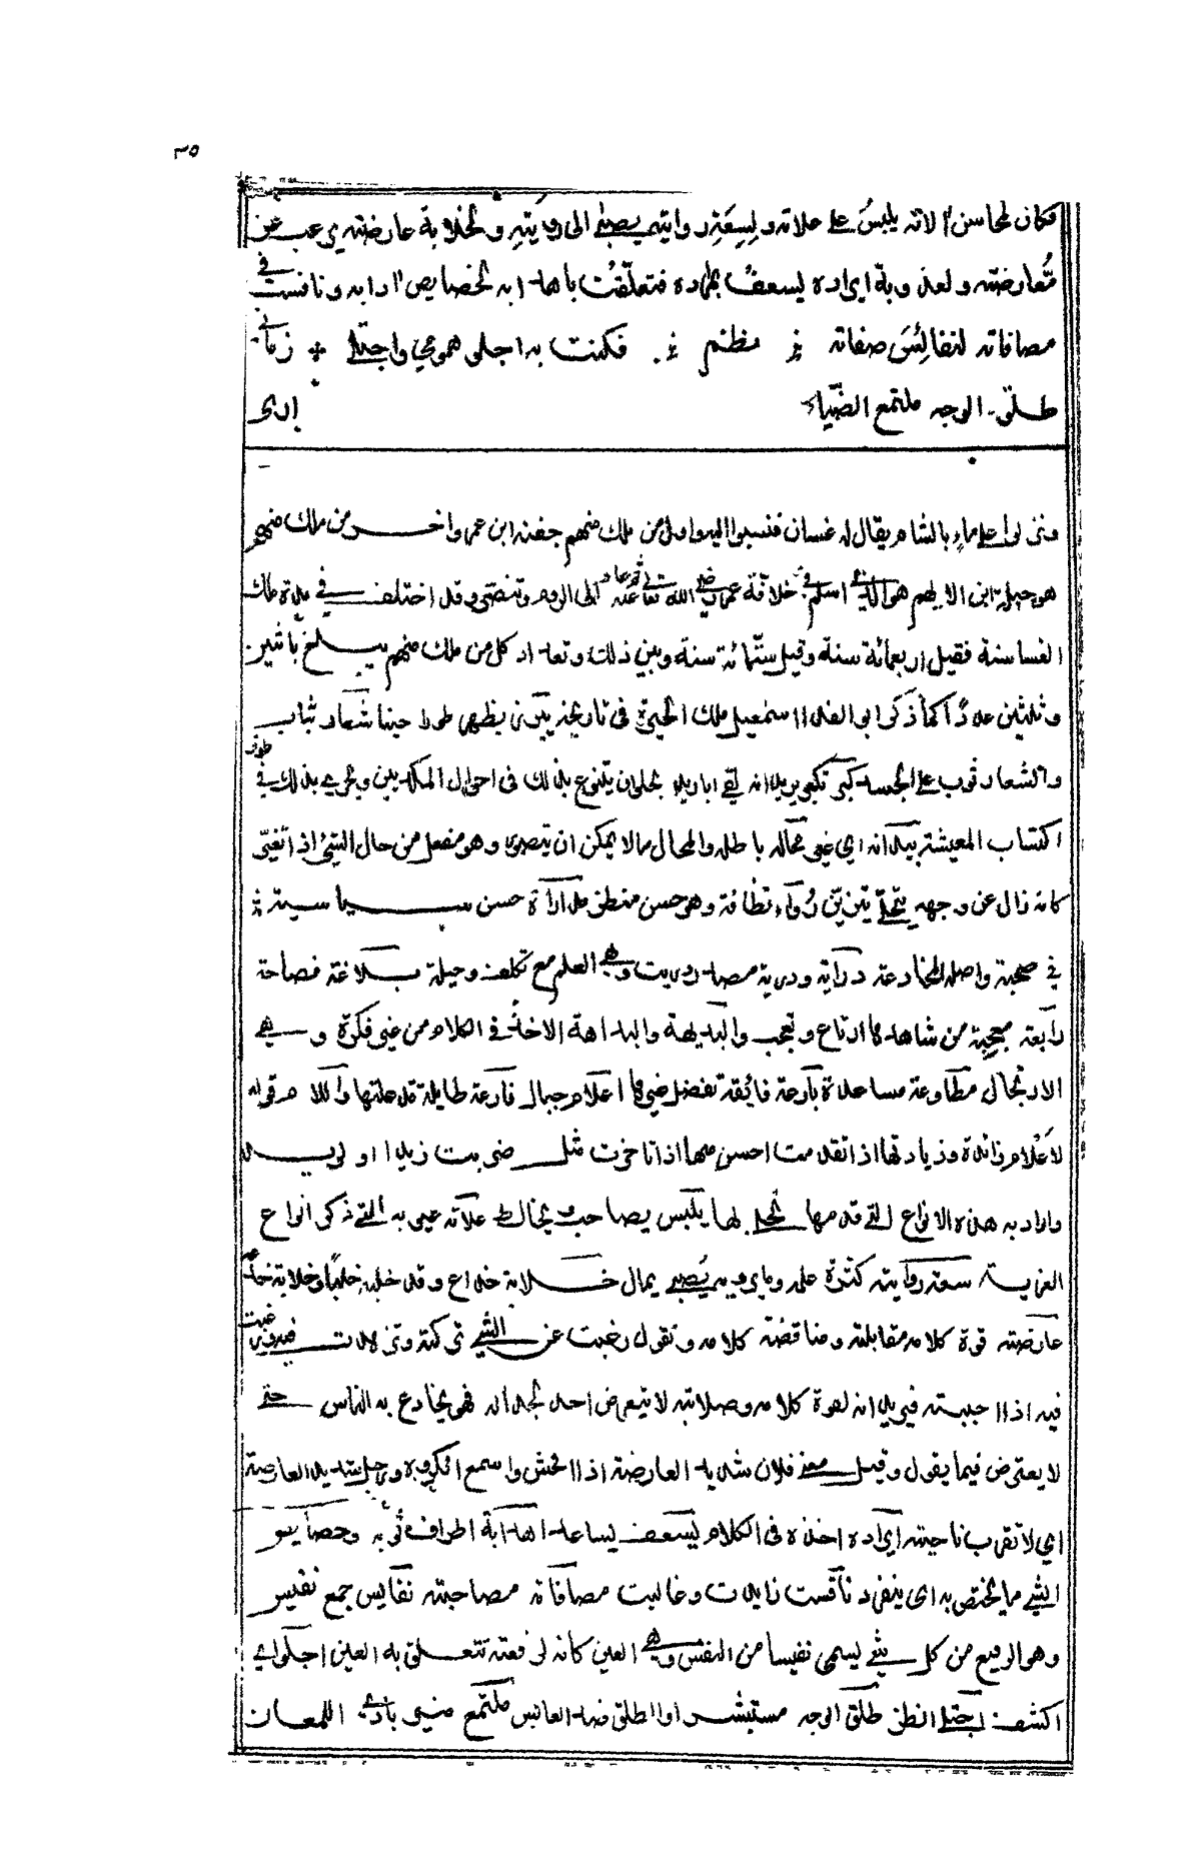 ٣٥
فكان لمحاسن آلاته يلبس على علاته ولسعة روايته يصبى الى رؤيته ولخلابة عارضته يرغب عن
معارضته ولعذوبة ايراده يسعف بمراده فتعلقت باهدابه لخصايص ادابه ونافست في
مصافاته لنفائس صفاته نظم فكنت به اجلى همومي واجتلى زماني
طلق الوجه ملتمع الضياء ارى
ونزلوا على ماء بالشام يقال له غسان فنسبوا اليه واول من ملك منهم جفنه ابن عمر واخر من ملك منهم
هو جبلة ابن الايهم هو الذي اسلم في خلافة عمر رضي الله تعالى عنه ثم عاد الى الروم وتنصر وقد اختلف في مدة ملك
الغساسنة فقيل اربعمائة سنة وقيل ستمائة سنة وبين ذلك وتعداد كل من ملك منهم يبلغ باثنين
وثلثين عددا كما ذكر ابو الفدا اسمعيل ملك الحيرة في تاريخه يبرز يظهر طورا حينا شعار ثياب
والشعار ثوب على الجسد كبر تكبر يريد انه لقي ابا زيد يتنوع بذلك في احوال المكديين ويجري بذلك في طرق
اكتساب المعيشة بيد انه اي غير محاله باطله والمحال مالا يمكن ان يتصور وهو مفعل من حال الشيء اذا تغير
كانه زال عن وجهه يتحلى يتزين رواء نظافة وهو حسن منظر مداراة حسن سياسية
في صحبة واصله المخادعة دراية ودرية مصدر دريت وهي العلم مع تكلف وحيلة بلاغة فصاحة
رائعة معجبة من شاهدها ارتاع وتعجب والبديهة والبداهة الاخذ في الكلام من غير فكرة وهي
الارتجال مطاوعة مساعدة بارعة فائقة تفضل غيرها اعلام جبال فارعة طايلة قد علتها واللام قوله
لاعلام زائدة وزيادتها اذا تقدمت احسن منها اذا تاخرت مثل ضربت زيدا او لزيد
واراد به هذه الانواع التي قدمها فجعل لها يلبس يصاحب ويخالط علاته عيوبه التي ذكر انواع
سعة روايته كثرة علمه وما يرويه يصبى يمال خلابة خداع وقد خلبه خلبا وخلابة خدعه
عارضته قوة كلامه مقابلته ومناقضة كلامه وتقول رغبت عن الشيء تركته وتزهدت فيه ورغبت
فيه اذا احببته فيريد انه لقوة كلامه وصلابته لا يتعرض احد لجداله فهو يخادع به الناس حتى
لا يعترض فيما يقول وقيل معنى فلان شديد العارضة اذا الخش واسمع المكروه ورجل شديد العارضة
اي لا تقرب ناحيته ايراده اخذه في الكلام يسعف يساعد اهدابه اطراف ثوبه وخصايص
الشيء ما يختص به اي ينفرد نافست زايدت وغالبت مصافاته مصاحبته نفايس جمع نفيس
وهو الرفيع من كل شيء يسمى نفيسا من النفس وهي العين كانه لرفعته تتعلق به العين اجلو اي
اكشف اجتلى انظر طلق الوجه مستبشرا والطلق ضد العابس ملتمع اللمعان